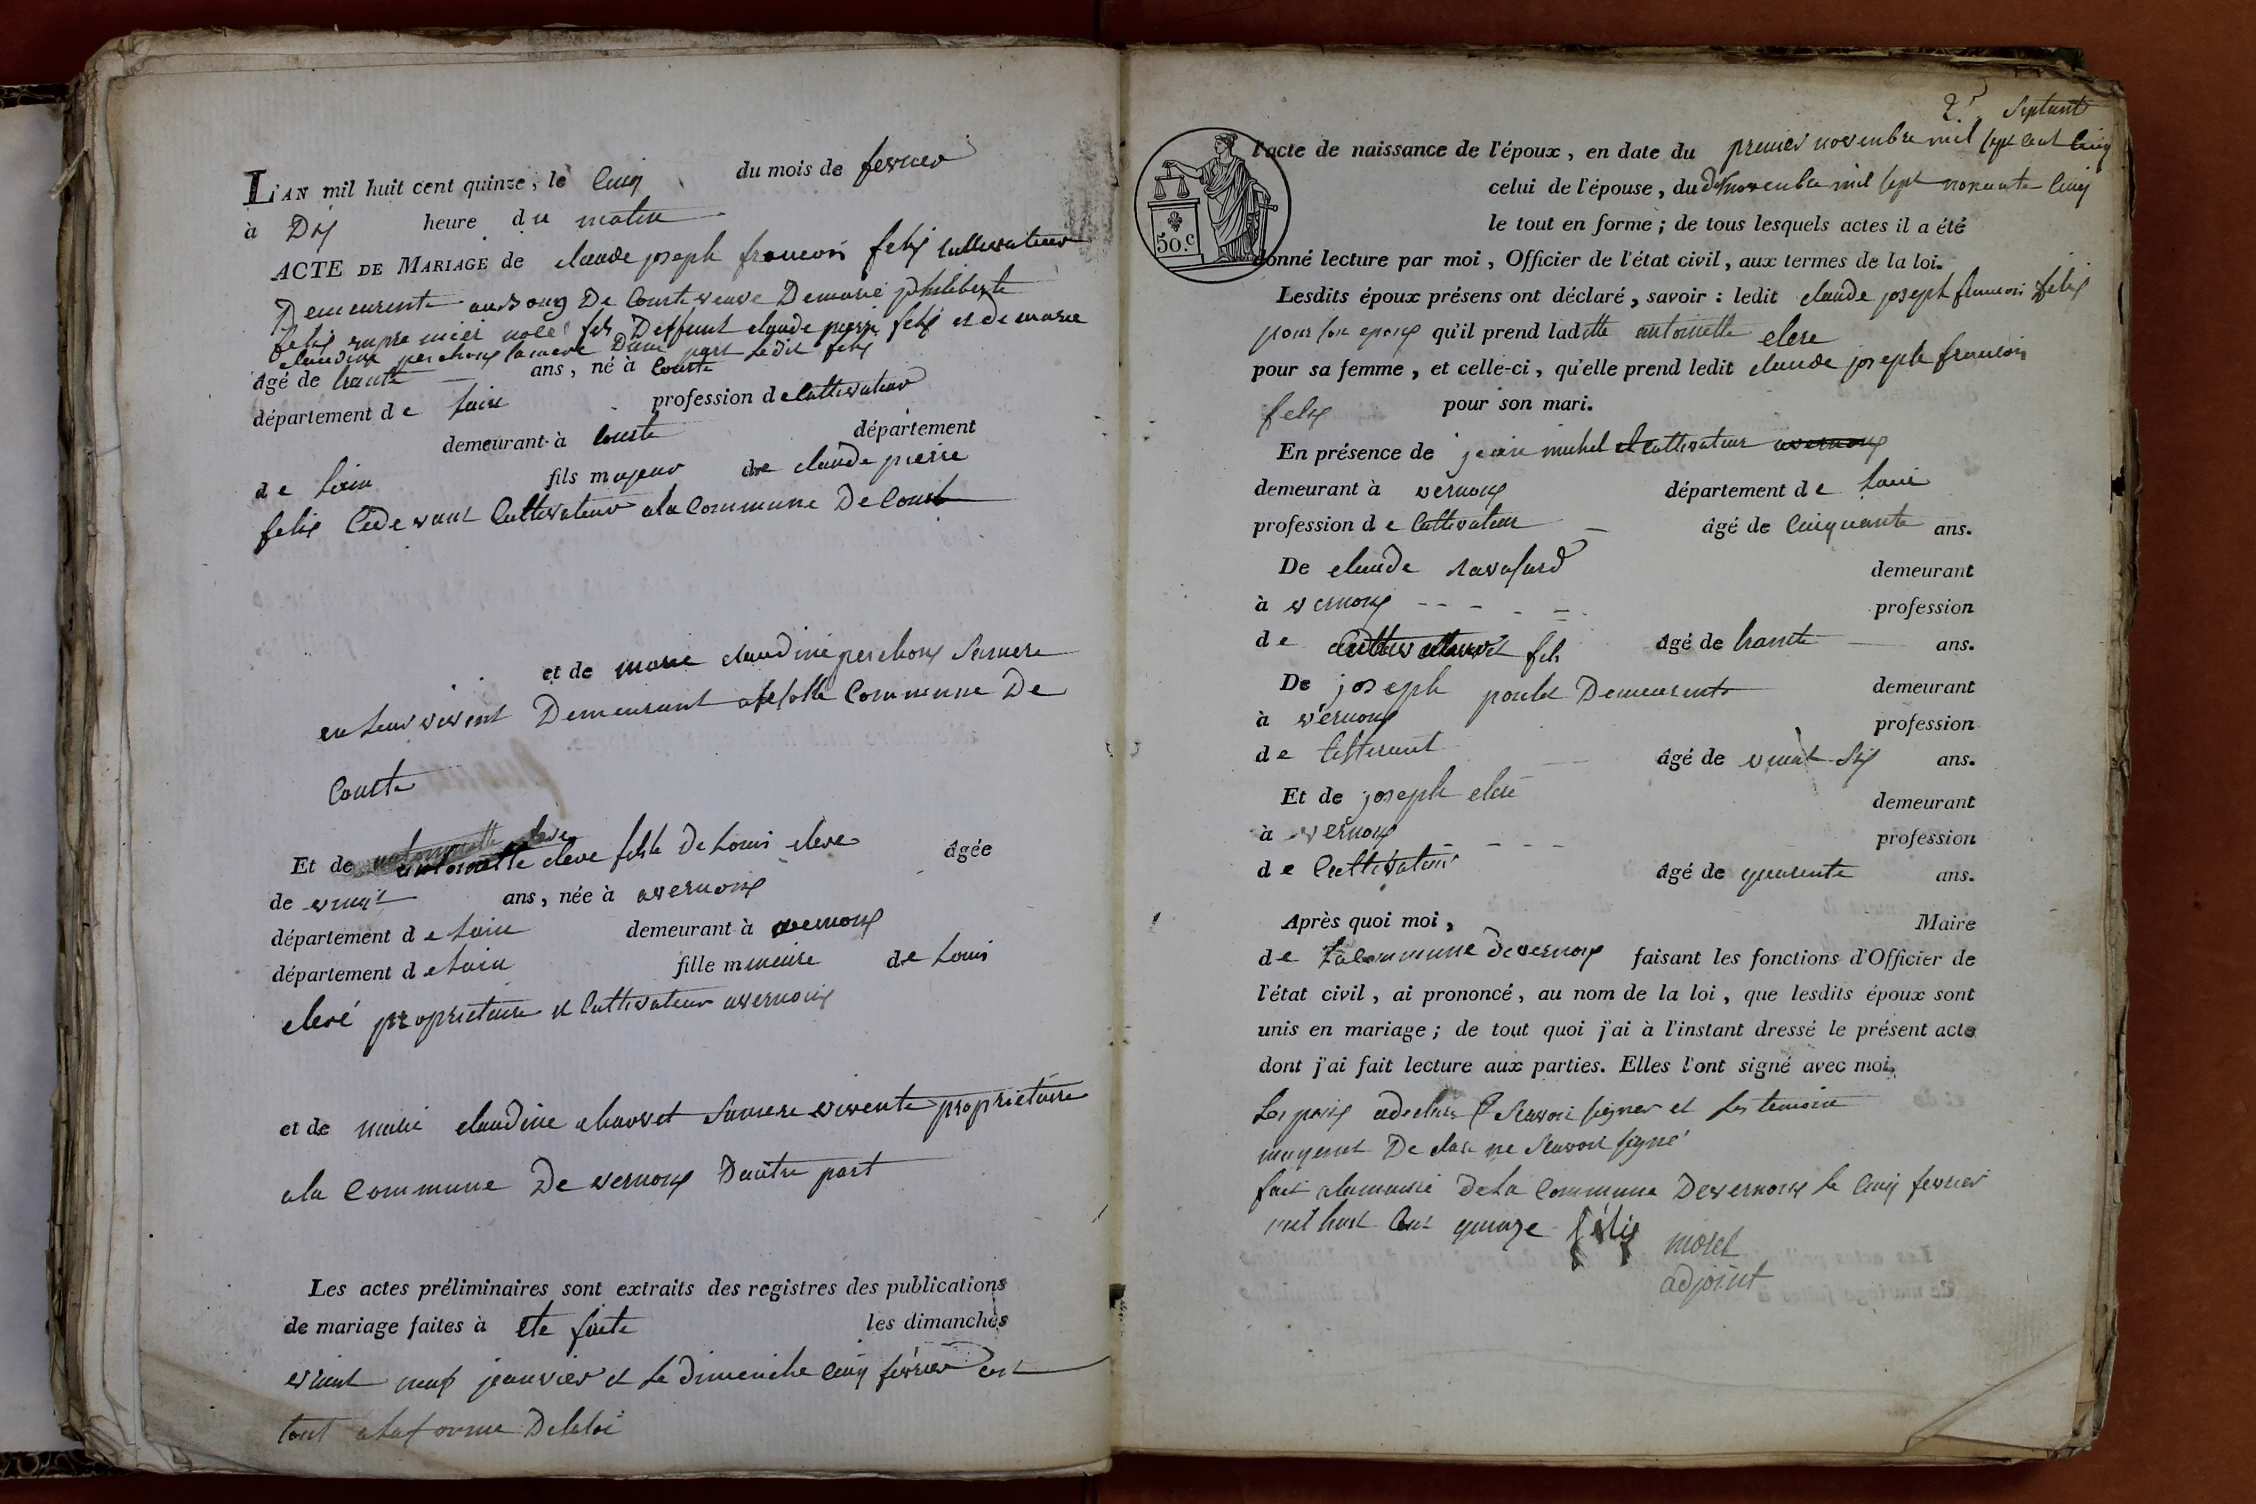 L'AN mil huit cent quinze, le Cinq du mois de fevrier
à Dix heure du matin
ACTE DE MARIAGE de claude joseph francois felix cultivateur
Demeurente au Boug De Courte veuve De marie philiberte
felix en premier noce fils Deffunt claude pierre felix et de marie
claudine perchoux sa mere D'une part Ledit felix
âgé de trante ans, né à Courte
département de Lain profession de Cultivateur
demeurant à Courte département
de Lain fils majeur de claude pierre
felix Cidevant Cultivateur ala Commune De Court
et de marie claudine perchoux Samere
en leur vivent Demeurant Commune De
Courte
Et de antoinette cleve fille De Louis cleve âgée
de vingt ans, née à avernoux
département de Lain demeurant à avernoux
département de Lain fille mineure de Louis
clere proprietaire et Cultivateur avernoux
et de marie claudine chauvet Samere vivente proprietaire
ala Commune De vernoux Dautre part
Les actes préliminaires sont extraits des registres des publications
de mariage faites à ete faite les dimanches
vint neuf jeanvier et Le dimenche Cinq fevrier
tout alaforme Delaloi
25 Septant
l'acte de naissance de l'époux, en date du premier novembre mil sept cent Cinq
celui de l'épouse, du novembre mil sept nonante Cinq
le tout en forme; de tous lesquels actes il a été
donné lecture par moi, Officier de l'état civil, aux termes de la loi.
50.c
Lesdits époux présens ont déclaré, savoir: ledit claude joseph francois felix
pour son epoux qu'il prend laditte antoinette clere
pour sa femme, et celle-ci, qu'elle prend ledit claude joseph francois
felix pour son mari.
En présence de jean michel Cultivateur avernoux
demeurant à vernoux département de Lain
profession de Cultivateur âgé de Cinquante ans.
De claude ravasard demeurant
à vernoux profession
de Cultivateur fils âgé de trante ans.
De joseph poulet Demeurente demeurant
à vernoux profession
de tisserant âgé de vint Six ans.
Et de joseph clere demeurant
à vernoux profession
de Cultivateur âgé de quarente ans.
Après quoi moi, Maire
de La Commune De vernoux faisant les fonctions d'Officier de
l'état civil, ai prononcé, au nom de la loi, que lesdits époux sont
unis en mariage; de tout quoi j'ai à l'instant dressé le présent acte
dont j'ai fait lecture aux parties. Elles l'ont signé avec moi.
Les signer et Les temoin
De ne Savoir signé
fait alamairie DeLa Commune Devernoux Le Cinq fevrier
mil huit Cent quinze félix morel
adjoint